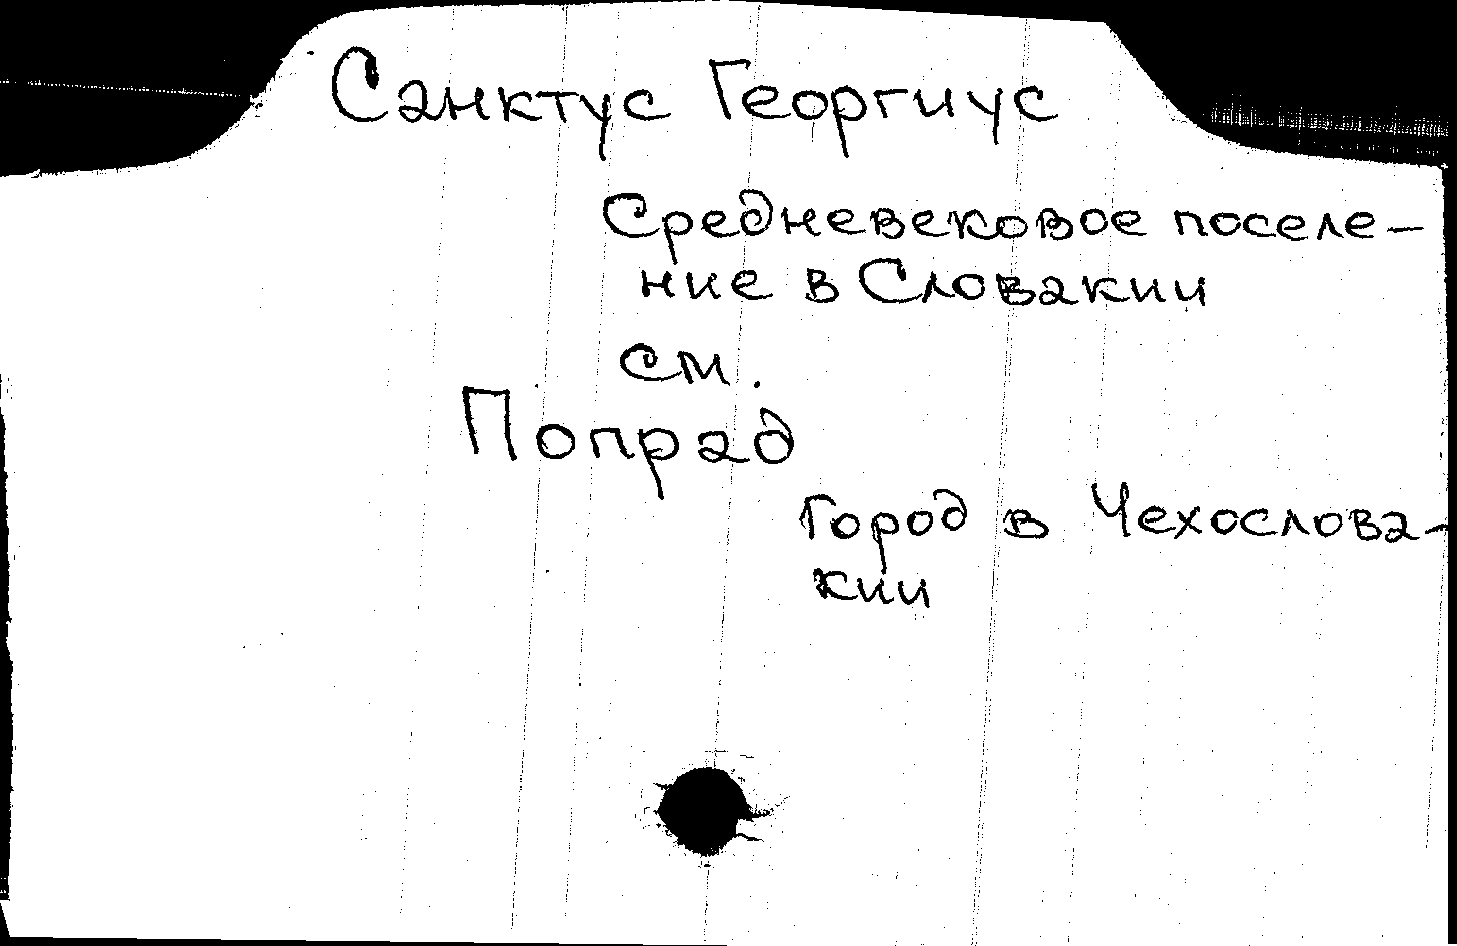 Санктус Георгиус
Средневековое поселе-
ние в Словакии
см.
Попрад
город в Чехослова-
кии